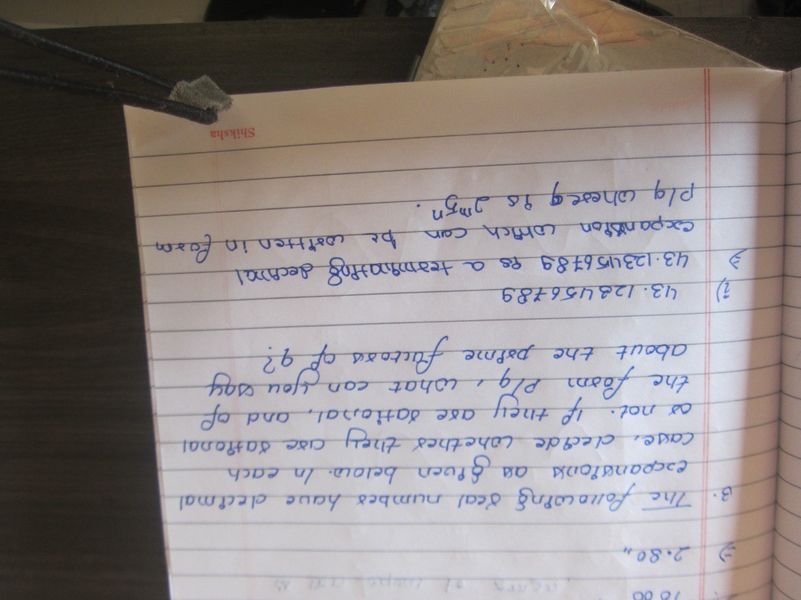 1000
⇒ 2.80,,
3. The following real numbers have decimal
expansions as given below. In each
case, decide whether they are rational
or not. If they are rational, and, of
the form p/q, what can you say
about the prime factors of q?
i) 43.123456789
⇒ 43.123456789 is a terminating decimal
expansion which can be written in form
p/q whose q is 2ᵐ5ⁿ.
Shiksha